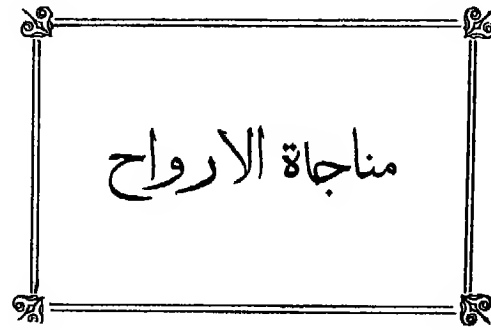 مناجاة الارواح